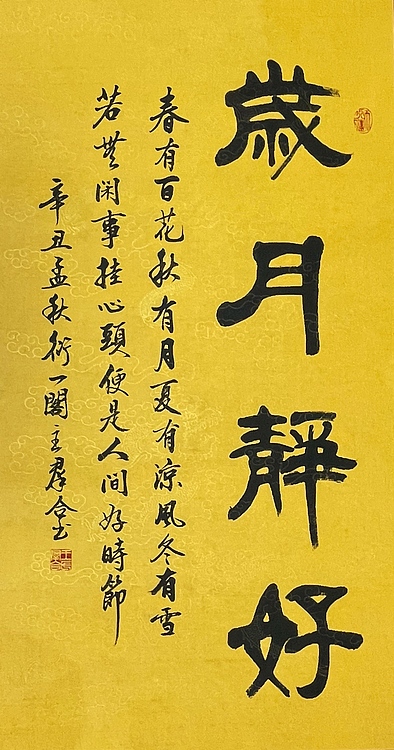 歲月靜好
春有百花秋有月夏有涼風冬有雪
若無閑事挂心頭便是人間好時節
辛丑孟秋衍一閣主群合书